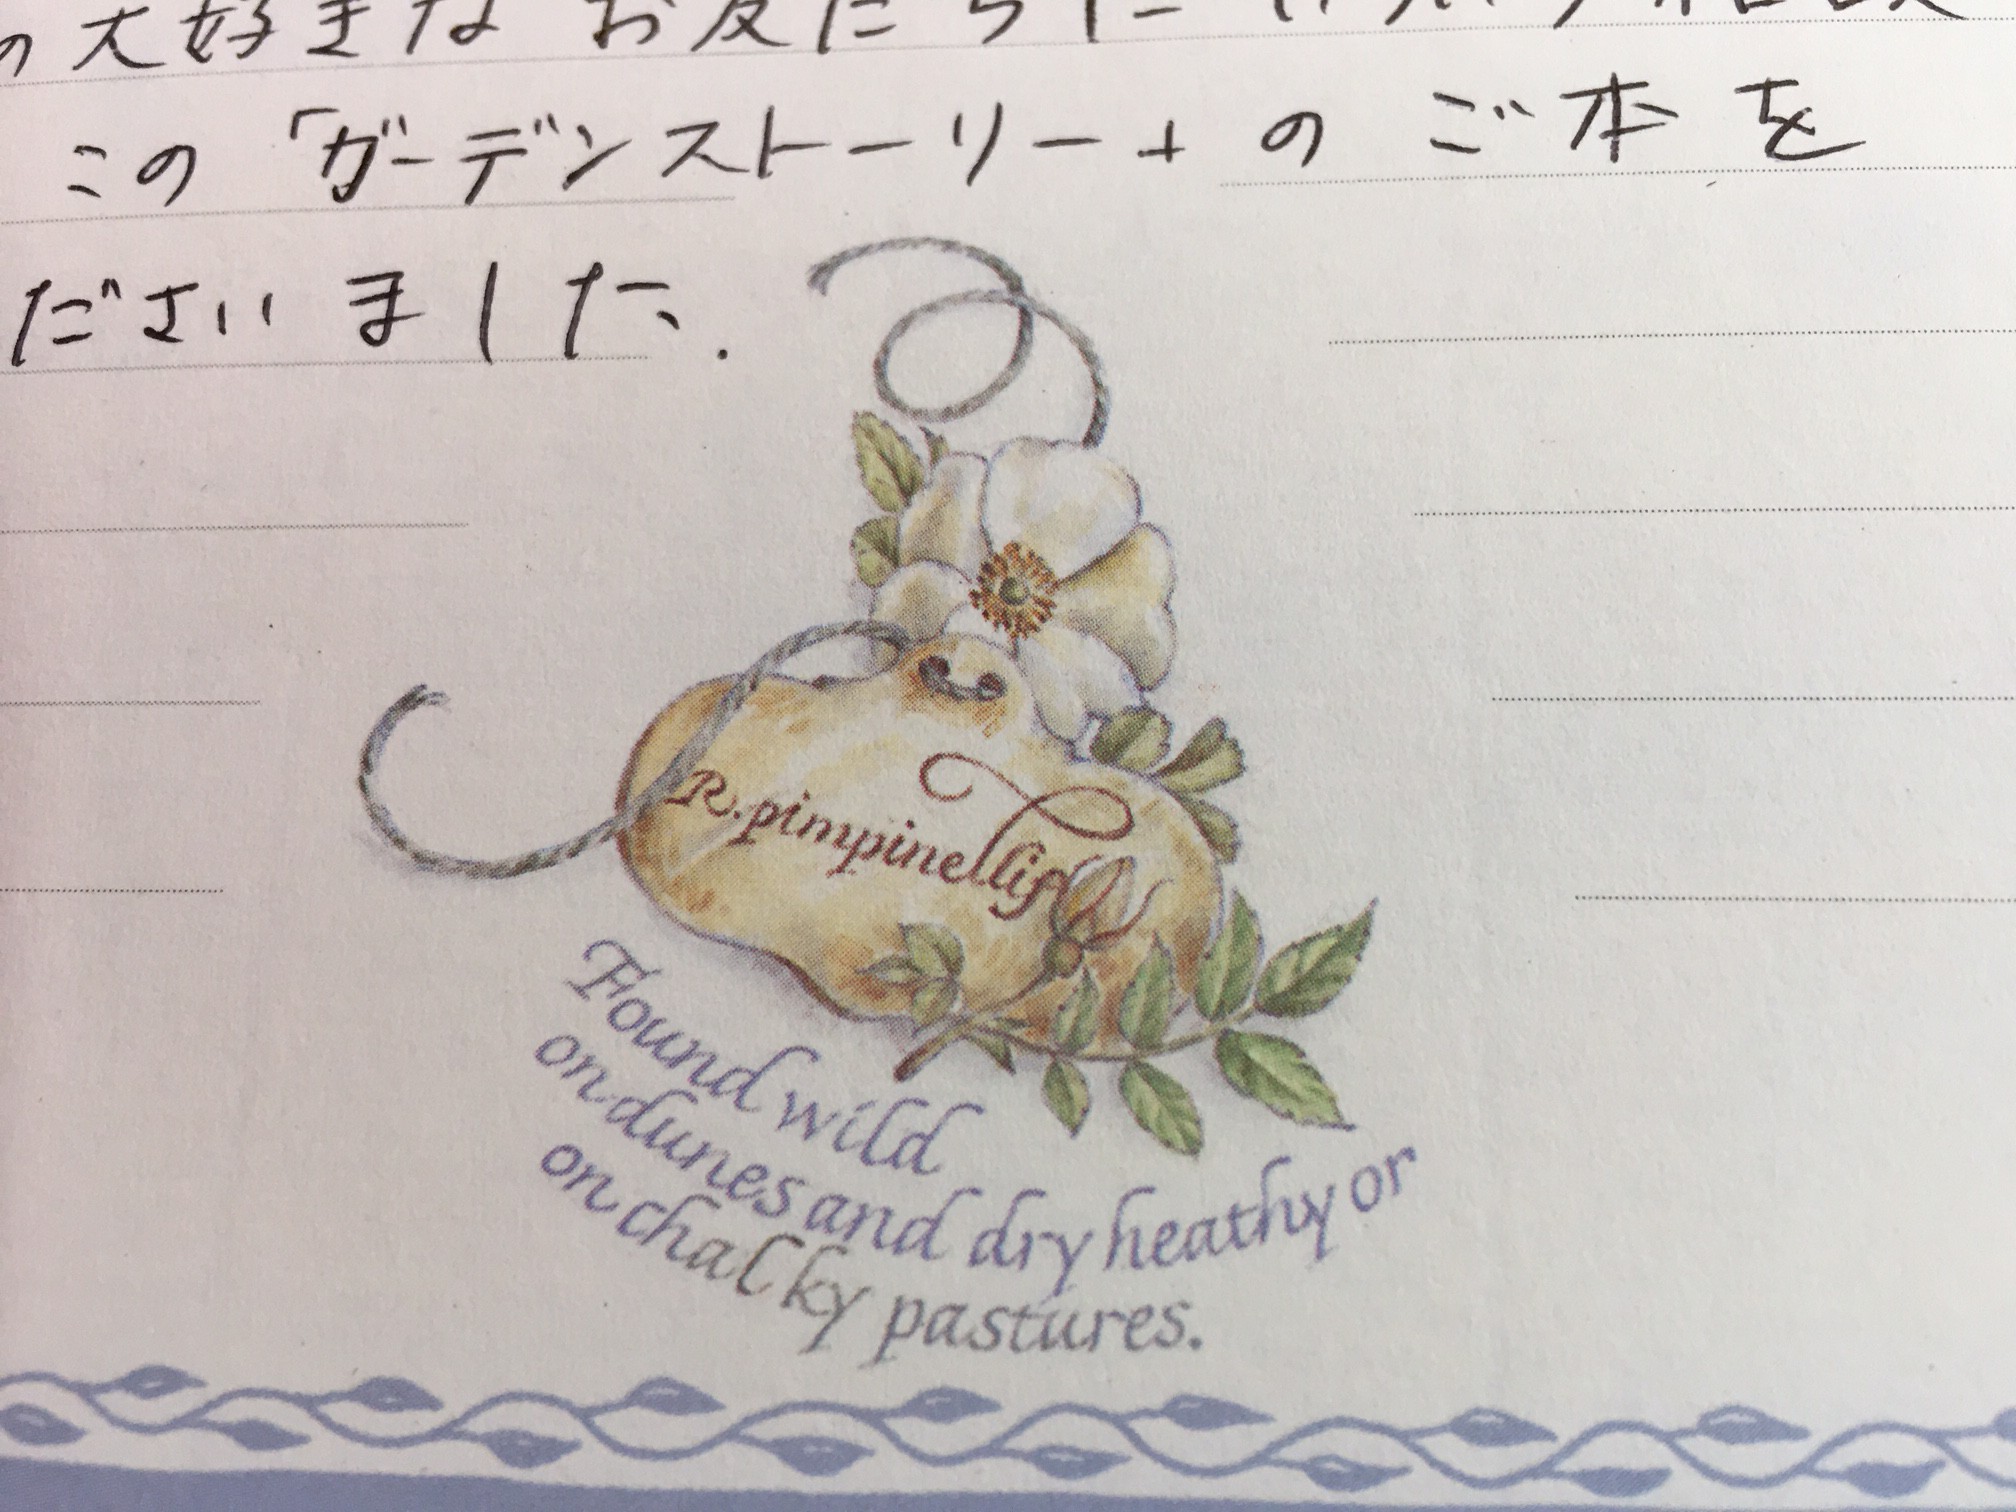 の大好きなお友だちた
この「ガーデンストーリー」のご本を
ださいました.
R. pimpinellif
Found wild
on dunes and dry heathy or
on chalky pastures.